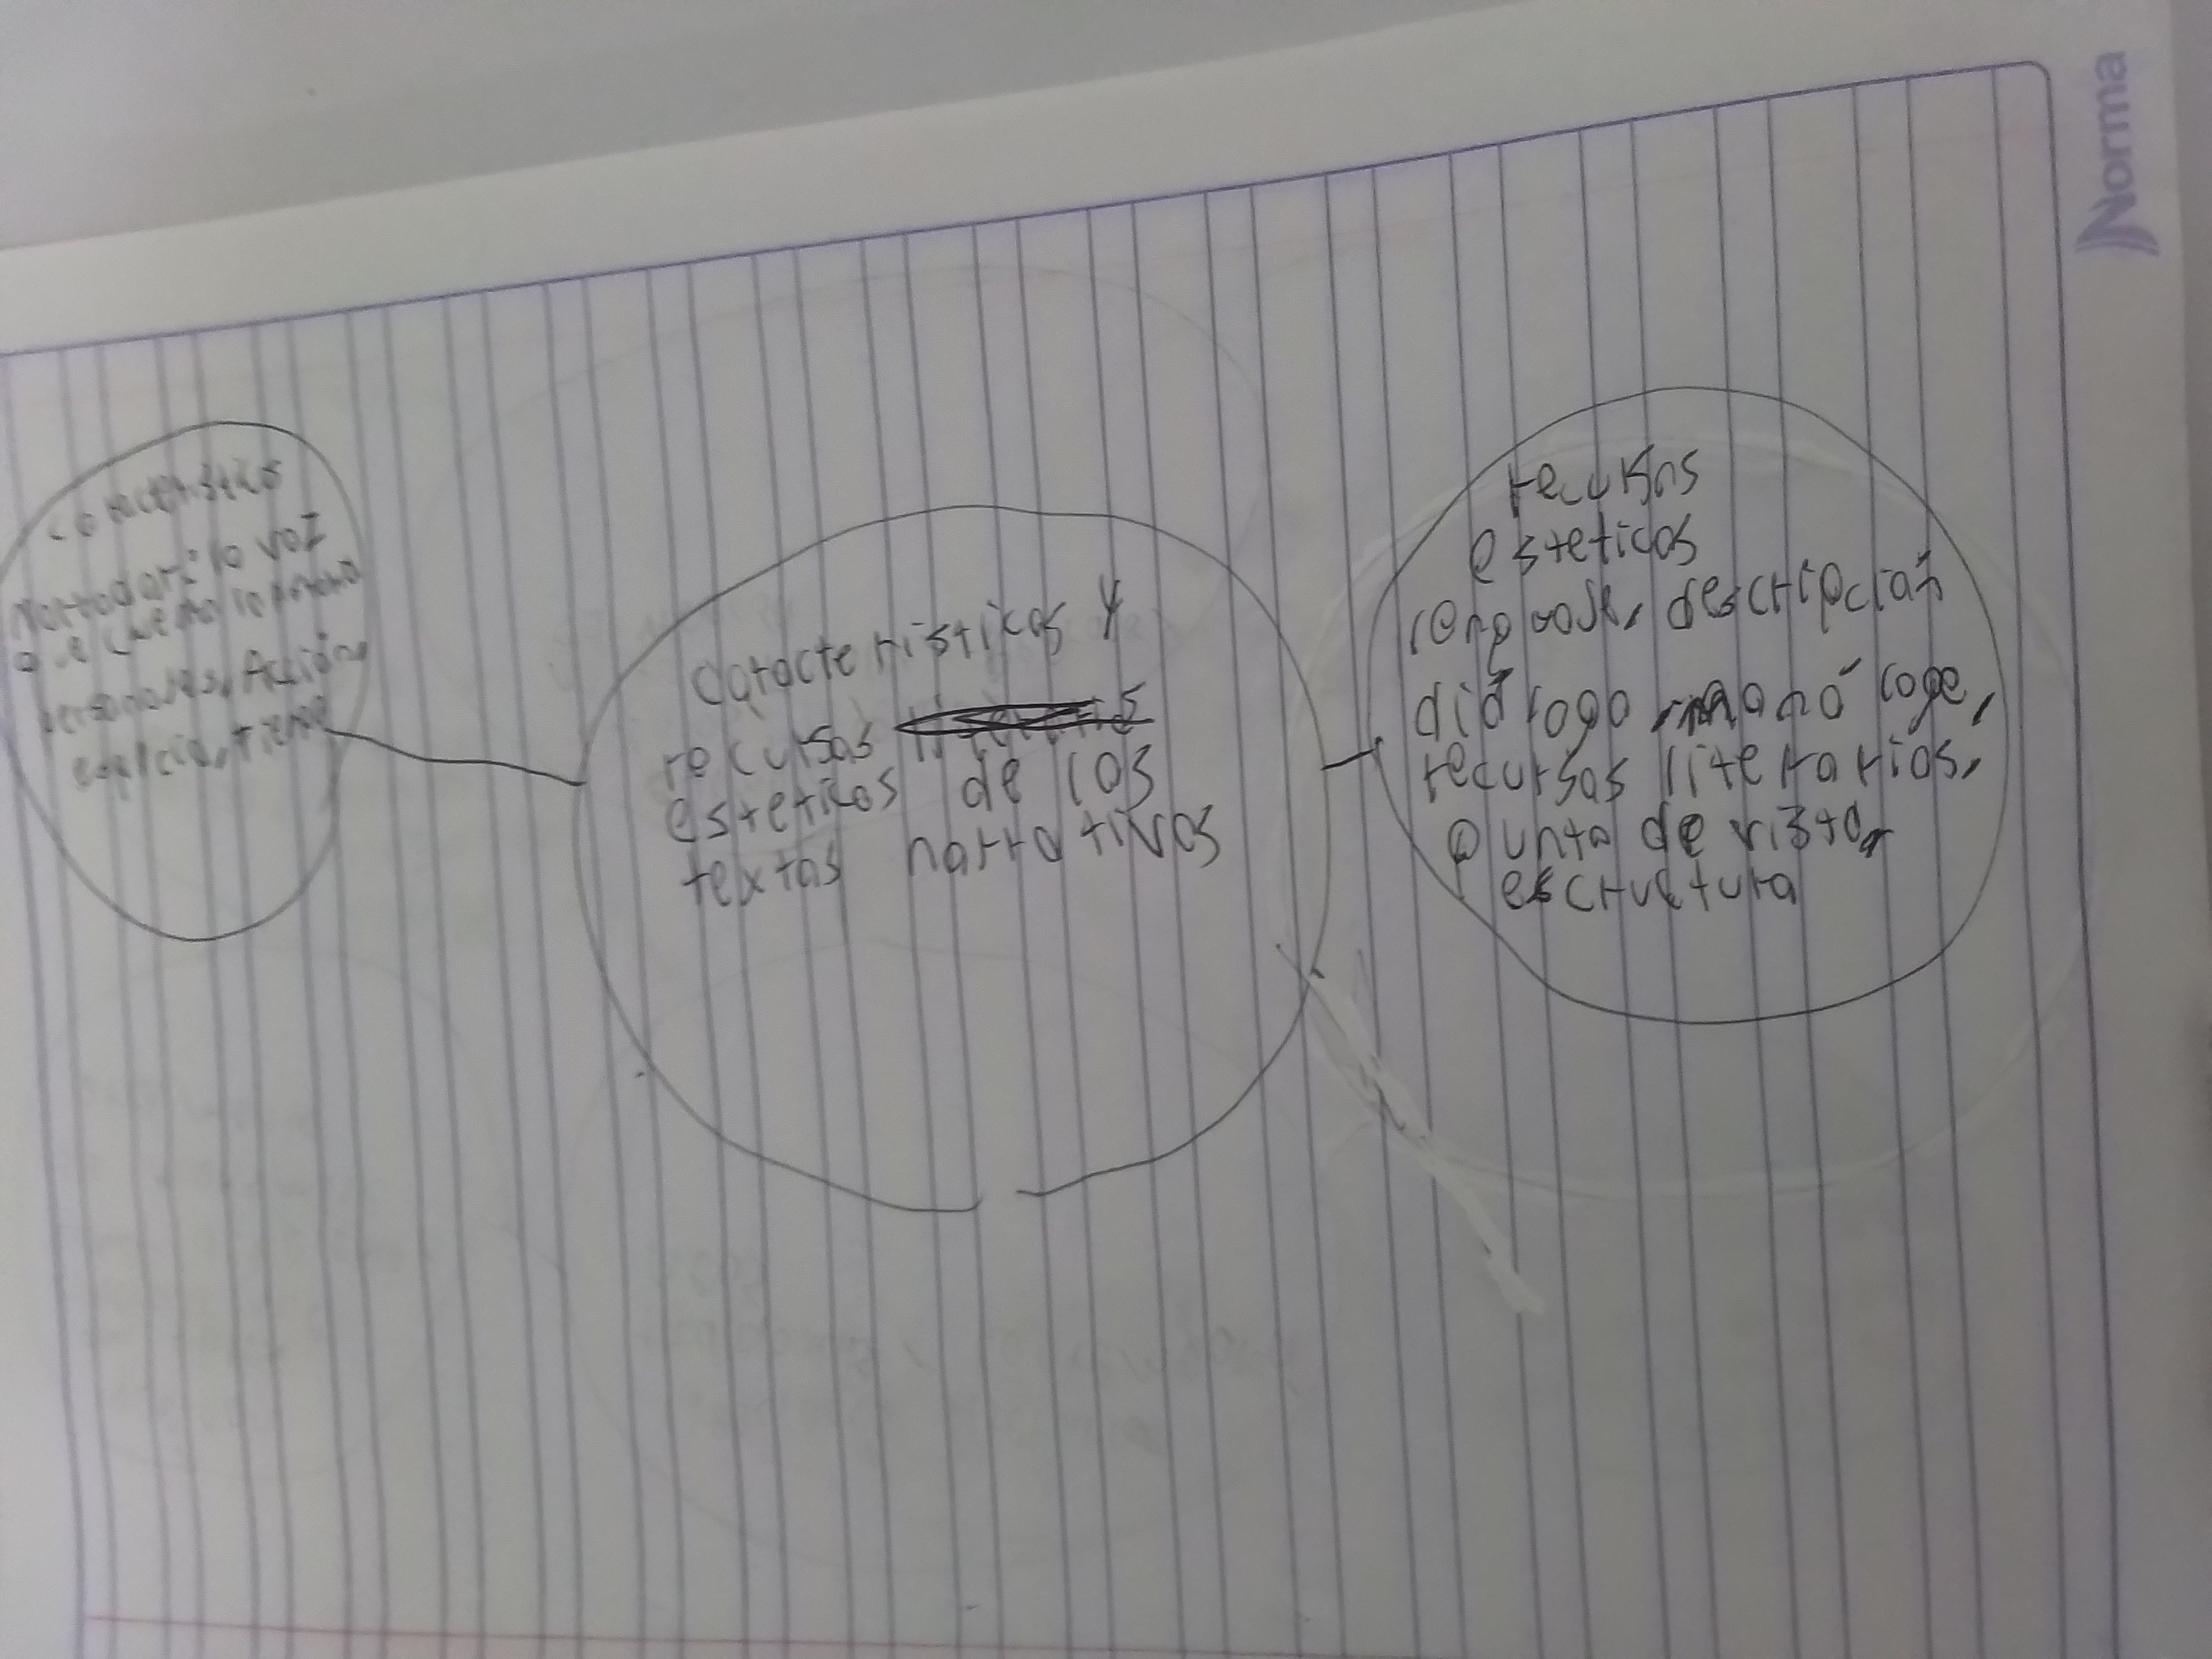 Norma
características
Narrador: la voz
que cuenta la
personajes, Acción,
características y
recursos
estéticos de los
textos narrativos
recursos
esteticos
lenguaje, descripción
diálogo,
recursos literarios,
punto de vista,
escructura